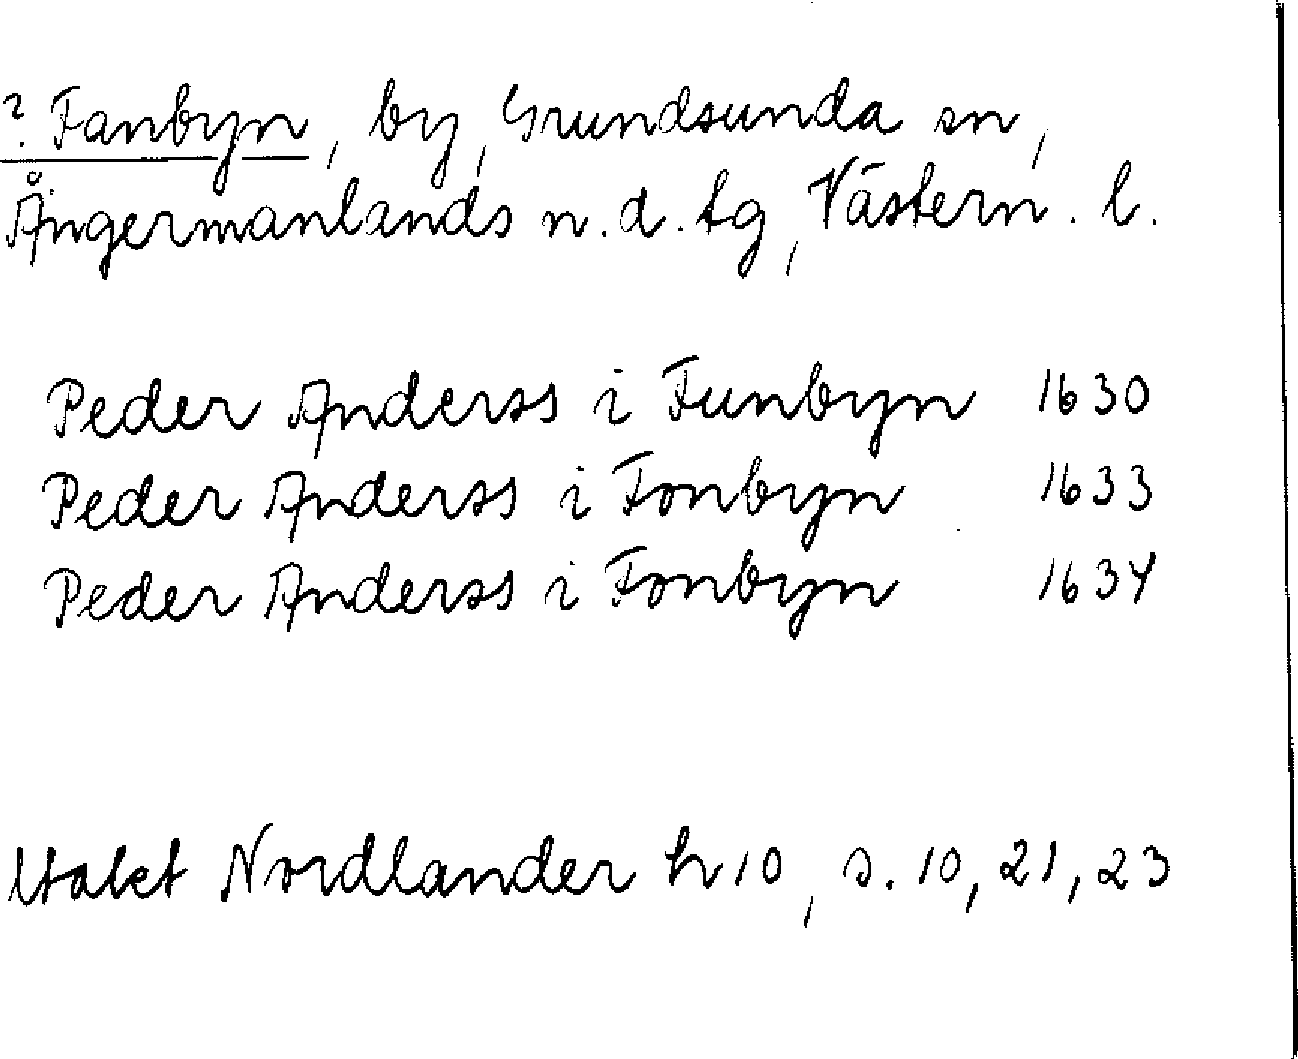 ? Fanbyn, by, Grundsunda sn,
Ångermanlands n. d. tg, Västern. l.
Peder Anderss i Funbyn 1630
Peder Anderss i Fonbyn 1633
Peder Anderss i Fonbyn 1634
Nordlander h 10, s. 10, 21, 23